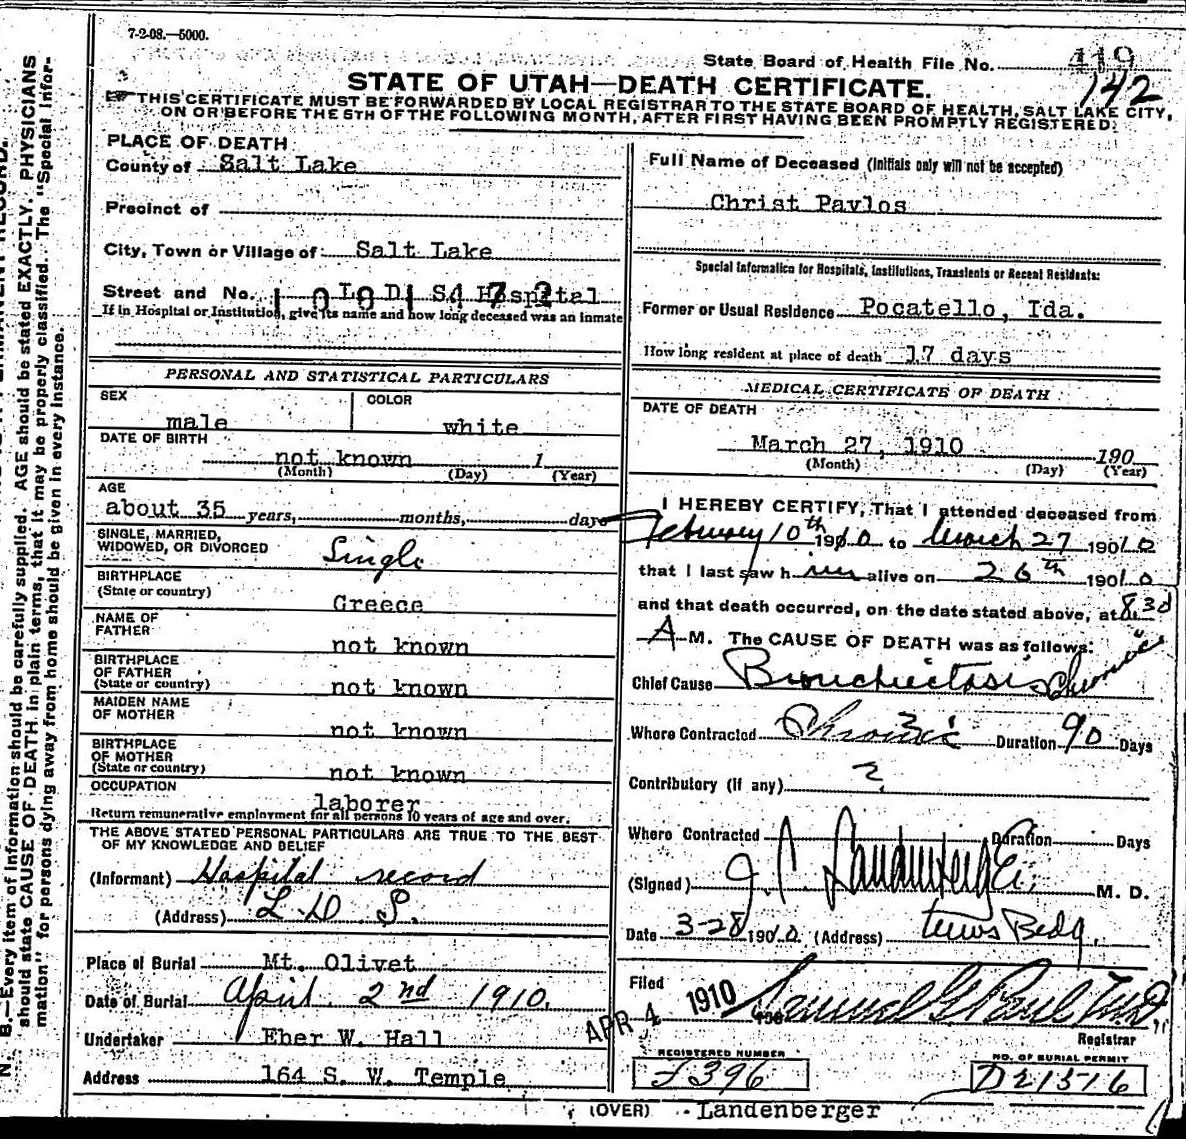 7-2-08.—5000.
State Board of Health File No. 419
142
STATE OF UTAH—DEATH CERTIFICATE.
THIS CERTIFICATE MUST BE FORWARDED BY LOCAL REGISTRAR TO THE STATE BOARD OF HEALTH, SALT LAKE CITY,
ON OR BEFORE THE 5TH OF THE FOLLOWING MONTH, AFTER FIRST HAVING BEEN PROMPTLY REGISTERED.
PLACE OF DEATH
County of Salt Lake
Precinct of
City, Town or Village of Salt Lake
Street and No. L D S Hospital
If in Hospital or Institution, give its name and how long deceased was an inmate
PERSONAL AND STATISTICAL PARTICULARS
SEX male COLOR white
DATE OF BIRTH not known 1
(Month) (Day) (Year)
AGE
about 35 years, months, days
SINGLE, MARRIED,
WIDOWED, OR DIVORCED Single
BIRTHPLACE
(State or country) Greece
NAME OF
FATHER not known
BIRTHPLACE
OF FATHER
(State or country) not known
MAIDEN NAME
OF MOTHER not known
BIRTHPLACE
OF MOTHER
(State or country) not known
OCCUPATION laborer
Return remunerative employment for all persons 10 years of age and over.
THE ABOVE STATED PERSONAL PARTICULARS ARE TRUE TO THE BEST
OF MY KNOWLEDGE AND BELIEF
(Informant) Hospital record
(Address) L D S.
Place of Burial Mt. Olivet
Date of Burial April 2nd 1910.
Undertaker Eber W. Hall
Address 164 S. W. Temple
Full Name of Deceased (Initials only will not be accepted)
Christ Pavlos
Special Information for Hospitals, Institutions, Transients or Recent Residents:
Former or Usual Residence Pocatello, Ida.
How long resident at place of death 17 days
MEDICAL CERTIFICATE OF DEATH
DATE OF DEATH
March 27, 1910 190
(Month) (Day) (Year)
I HEREBY CERTIFY, That I attended deceased from
February 10th 1910 to March 27 1910
that I last saw him alive on 26th 1910
and that death occurred, on the date stated above, at 8.30
A M. The CAUSE OF DEATH was as follows:
Chief Cause Bronchiectasis Chronic
Where Contracted Chronic ? Duration 90 Days
Contributory (if any) ?
Where Contracted Duration Days
(Signed) J. C. Landenberger M. D.
Date 3-28 1910 (Address) Bldg.
Filed APR 4 1910 190 Samuel G. Paul M.D.
Registrar
REGISTERED NUMBER
J396
NO. OF BURIAL PERMIT
D21516
(OVER) Landenberger
N. B.—Every item of information should be carefully supplied. AGE should be stated EXACTLY. PHYSICIANS
should state CAUSE OF DEATH in plain terms, that it may be properly classified. The "Special Infor-
mation" for persons dying away from home should be given in every instance.